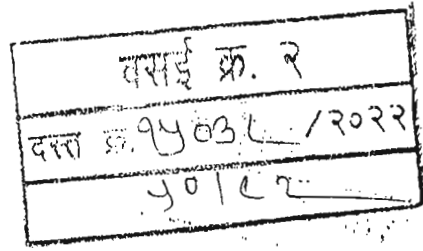 वसई क्र. २
दस्त क्र. १५०३८ /२०२२
५०/८२